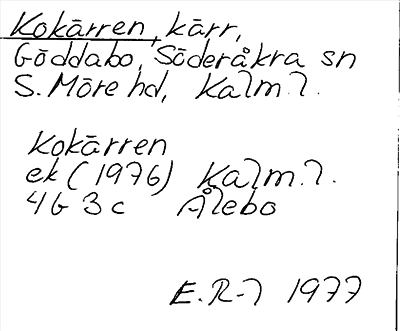 Kokärren, kärr,
Göddabo, Söderåkra sn
S. Möre hd, Kalm. l.
Kokärren
ek (1976) Kalm. l.
4G 3c Ålebo
E. R-l 1977